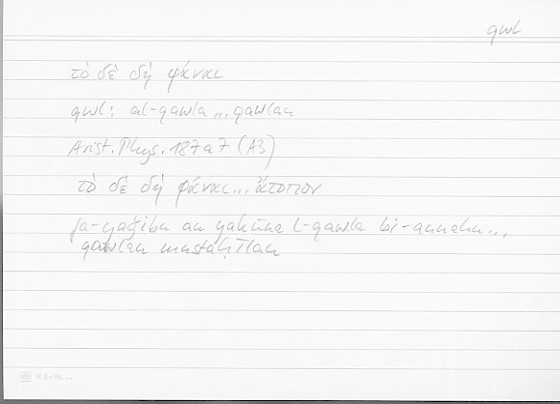 qwl
τὸ δὲ δὴ φάναι
qwl: al-qawla ... qawlan
Arist. Phys. 187a7 (A3)
τὸ δὲ δὴ φάναι ... ἄτοπον
fa-yaǧibu an yakūna l-qawla bi-annahu ...
qawlan mustaḥīlan